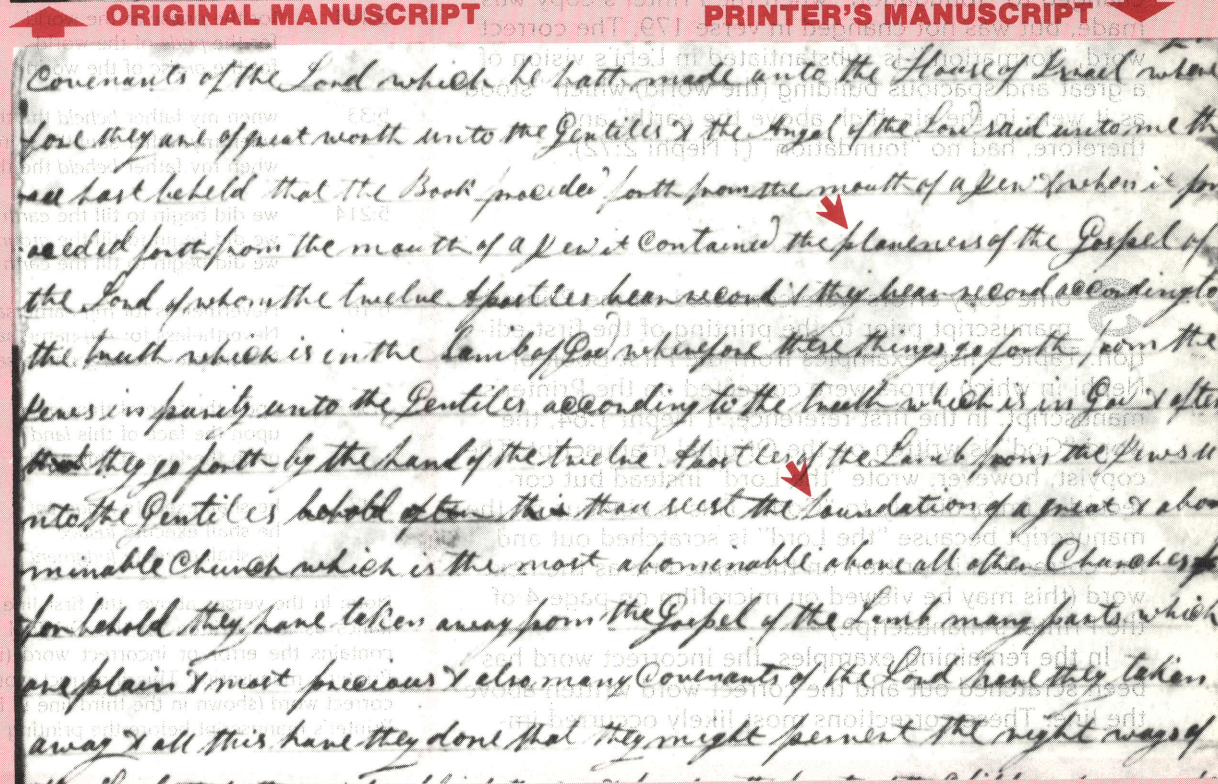 ORIGINAL MANUSCRIPT PRINTER'S MANUSCRIPT
Covenants of the Lord which he hath made unto the House of Israel where
fore they are of great worth unto the Gentiles & the Angel of the Lord said unto me th
hast beheld that the Book proceded forth from the mouth of a Jew & when it pro
ceeded forth from the mouth of a Jew it contained the planeness of the Gospel of
the Lord of whom the twelve Apostles bear record & they bear record according to
the truth which is in the Lamb of God wherefore these things go forth from the
Jews in purity unto the Gentiles according to the truth which is in God & after
that they go forth by the hand of the twelve Apostles of the Lamb from the Jews u
nto the Gentiles behold after this thou seest the foundation of a great & abo
minable Church which is the most abominable above all other Churches
for behold they have taken away from the Gospel of the Lamb many parts which
are plain & most precious & also many Covenants of the Lord have they taken
away & all this have they done that they might pervert the right ways of